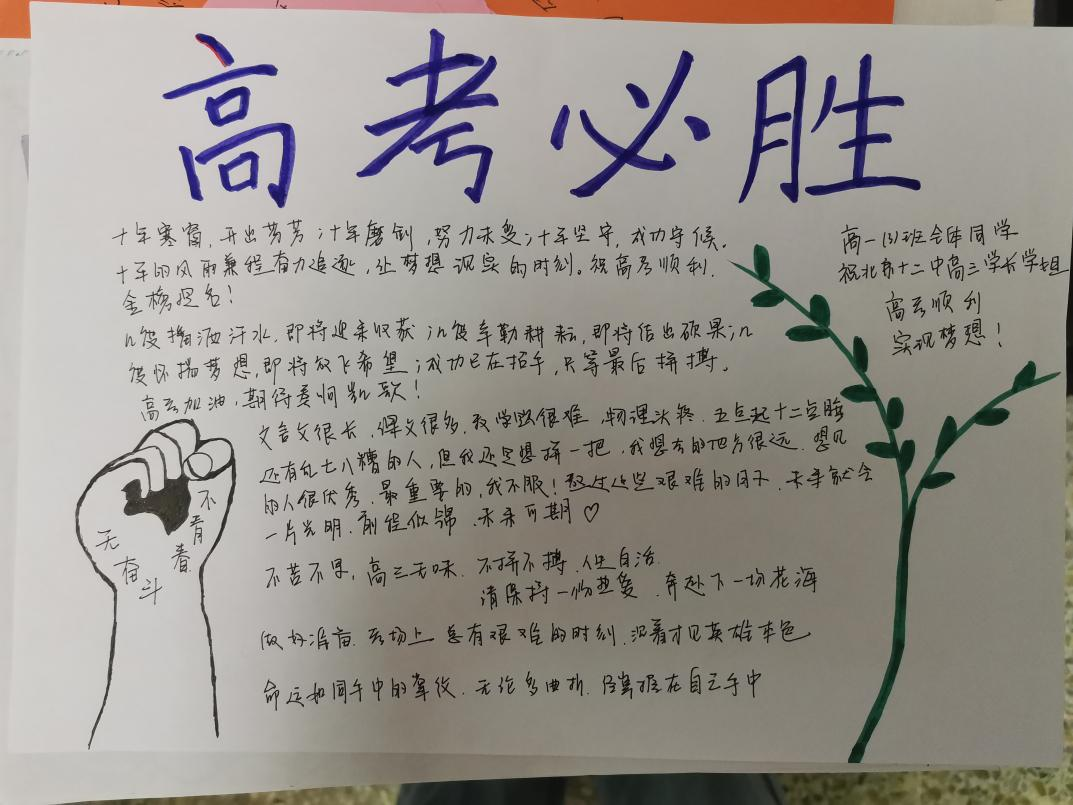 高考必胜
十年寒窗,开出芬芳;十年磨剑,努力未变;十年坚守,成功守候。
十年的风雨兼程奋力追逐,让梦想现实的时刻。祝高考顺利,
金榜题名!
几度挥洒汗水,即将迎来收获;几度辛勤耕耘,即将结出硕果;几
度怀揣梦想,即将放飞希望;成功已在招手,只等最后拼搏。
高考加油,期待凯歌!
文言文很长,课文很多,数学很难,物理头疼,五点起十二点睡
还有乱七八糟的人,但我还是想拼一把,我想去的地方很远,想见
的人很优秀,最重要的,我不服!熬过这些艰难的日子,未来就会
一片光明,前程似锦,未来可期♡
不苦不累,高三无味,不拼不搏,人生白活.
请保持一份热爱,奔赴下一场花海
做好准备,考场上总有艰难的时刻,沉着才见英雄本色
命运如同手中的掌纹,无论多曲折,终掌握在自己手中
高一(3)班全体同学
祝北京十二中高三学长学姐
高考顺利
实现梦想!
无奋斗
不青春